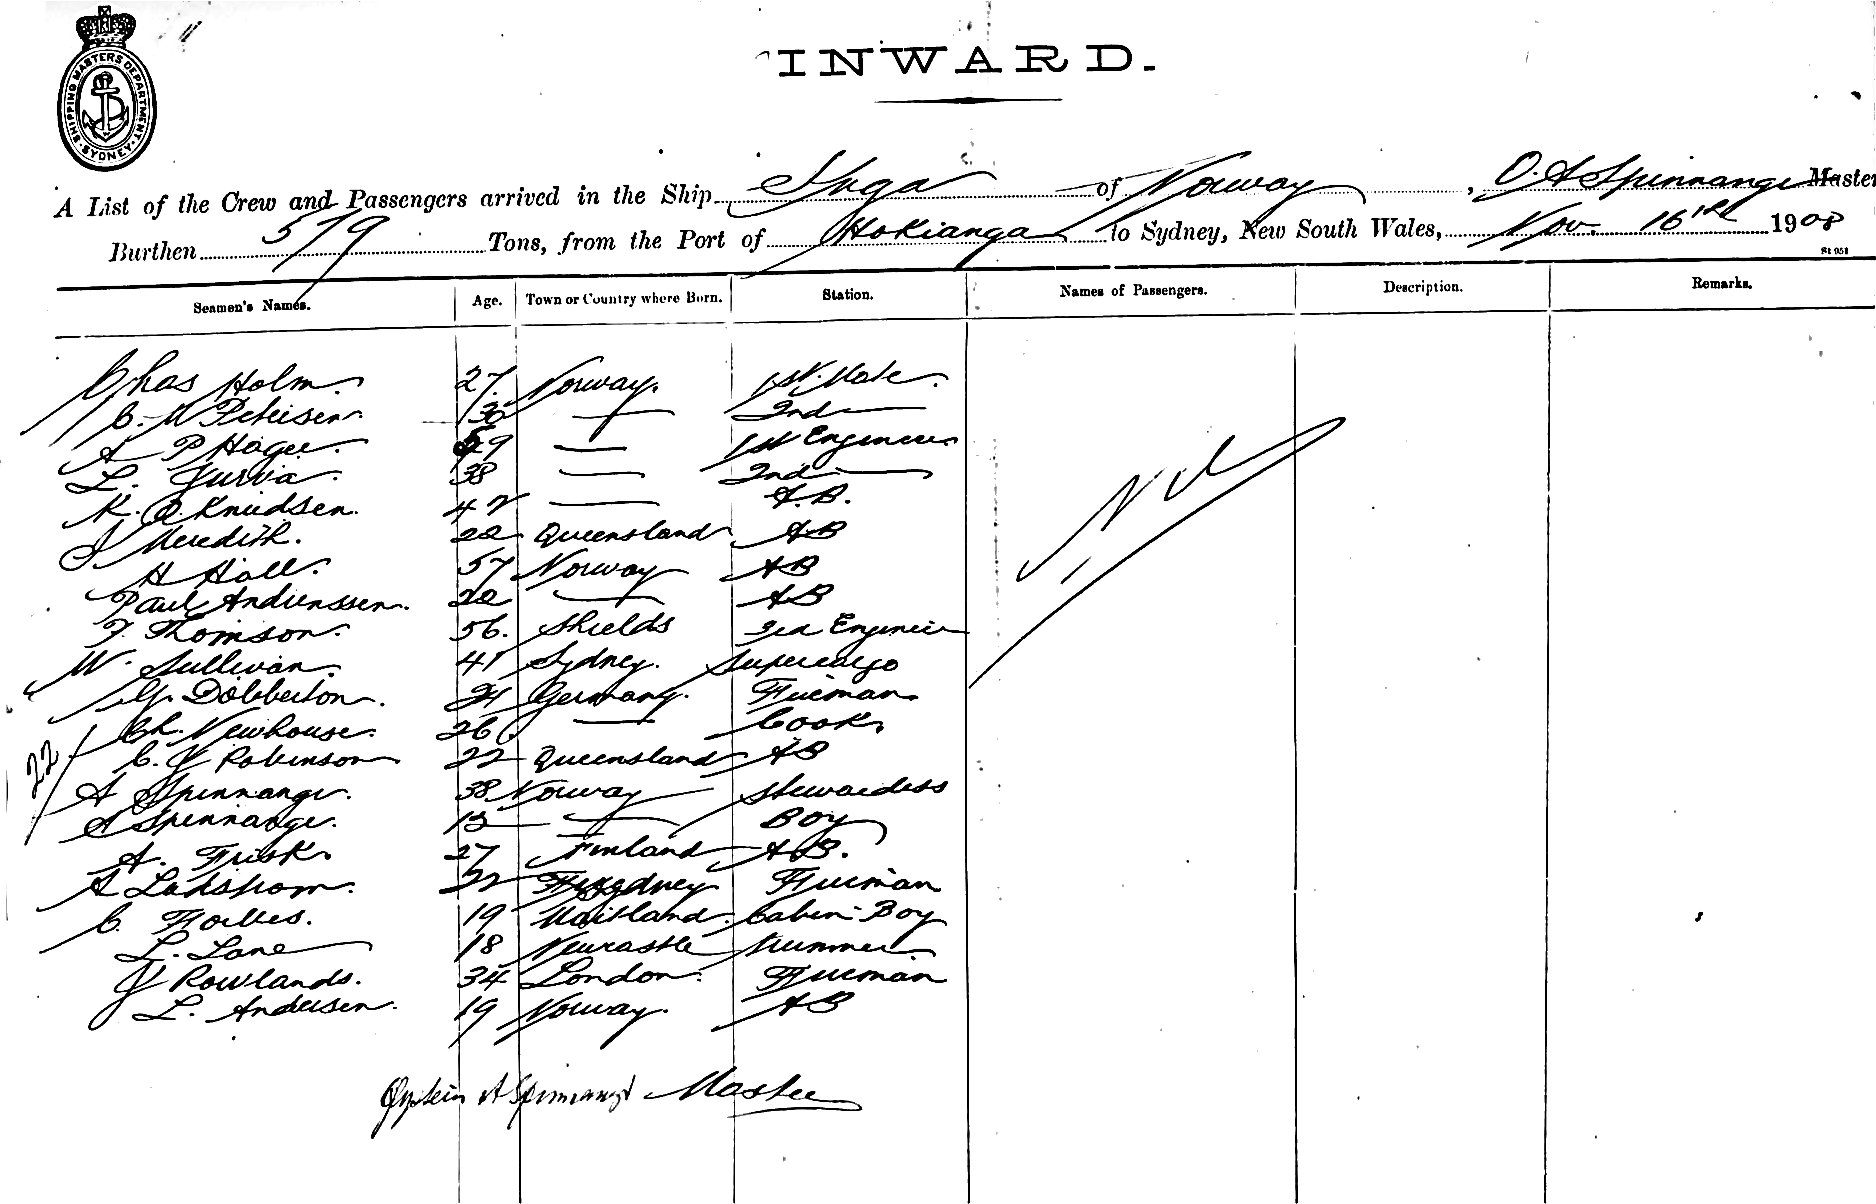 SHIPPING MASTERS DEPARTMENT. SYDNEY
INWARD.
A List of the Crew and Passengers arrived in the Ship Inga of Norway, O. A Spinnangr Master
Burthen 579 Tons, from the Port of Hokianga to Sydney, New South Wales, Nov. 16th 1908
St 951
Seamen's Names. Age. Town or Country where Born. Station. Names of Passengers. Description. Remarks.
Chas Holm. 27. Norway. 1st. Mate.
C. M Petersen. 30 — 2nd —
A P Hager. 59 — 1st Engineer
L. 38 — 2nd —
K. O. Knudsen. 42 — A.B.
J Meredith. 22 Queensland AB
H Hall. 57 Norway AB
Paul Andrenssen. 22 — AB
F. Thomson. 56. Shields 3rd Engineer
W. Sullivan. 41 Sydney. Supercargo
G. Dobberton. 24 Germany. Fireman
Ch. Newhouse. 26 — Cook
C. J Robinson 22 Queensland AB
22
A Spinnangr. 38 Norway Stewardess
A Spinnangr. 13 — Boy
A. Frisk 27 Finland A.B.
A Ladshom. 22 Sydney Fireman
C. Forbes. 19 Maitland. Cabin Boy
L. Lane 18 Newcastle Trimmer
J Rowlands. 34 London. Fireman
L. Andersen. 19 Norway. AB
Nil
A Spinnangr Master